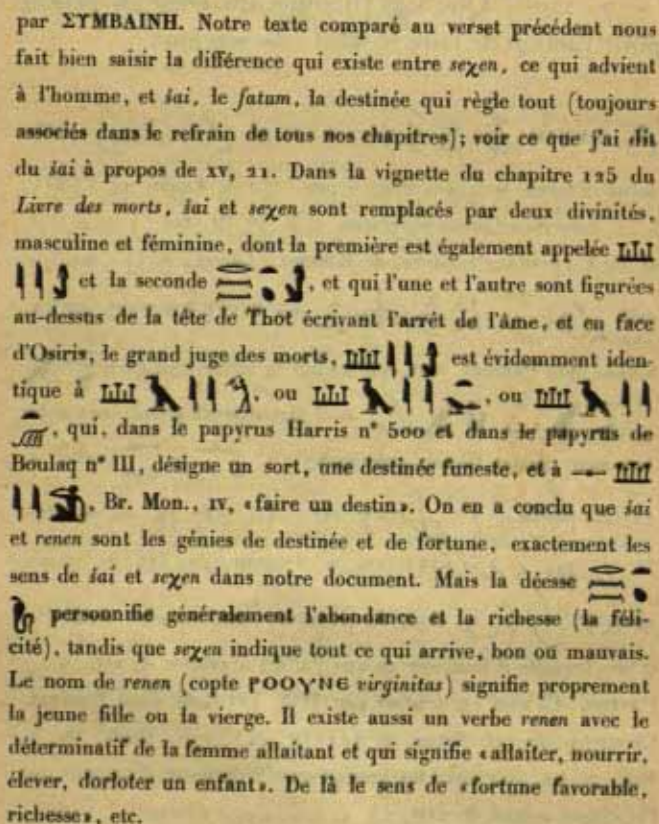 par ΣΥΜΒΑΙΝΗ. Notre texte comparé au verset précédent nous
fait bien saisir la différence qui existe entre seχen, ce qui advient
à l'homme, et šai, le fatum, la destinée qui règle tout (toujours
associés dans le refrain de tous nos chapitres); voir ce que j'ai dit
du šai à propos de xv, 21. Dans la vignette du chapitre 125 du
Livre des morts, šai et seχen sont remplacés par deux divinités,
masculine et féminine, dont la première est également appelée
et la seconde , et qui l'une et l'autre sont figurées
au-dessus de la tête de Thot écrivant l'arrêt de l'âme, et en face
d'Osiris, le grand juge des morts, est évidemment iden-
tique à , ou , ou
, qui, dans le papyrus Harris n° 500 et dans le papyrus de
Boulaq n° III, désigne un sort, une destinée funeste, et à —
, Br. Mon., IV, «faire un destin». On en a conclu que šai
et renen sont les génies de destinée et de fortune, exactement les
sens de šai et seχen dans notre document. Mais la déesse
personnifie généralement l'abondance et la richesse (la féli-
cité), tandis que seχen indique tout ce qui arrive, bon ou mauvais.
Le nom de renen (copte ⲣⲟⲟⲩⲛⲉ virginitas) signifie proprement
la jeune fille ou la vierge. Il existe aussi un verbe renen avec le
déterminatif de la femme allaitant et qui signifie «allaiter, nourrir,
élever, dorloter un enfant». De là le sens de «fortune favorable,
richesse», etc.